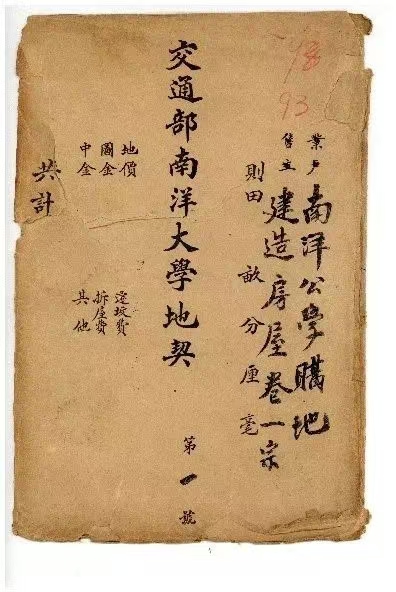 93
業户 南洋公學購地
售主 建造房屋卷一宗
則田 畝分厘毫
交通部南洋大學地契 第一號
地價 遷坟費
圖金 拆屋費
中金 其他
共計